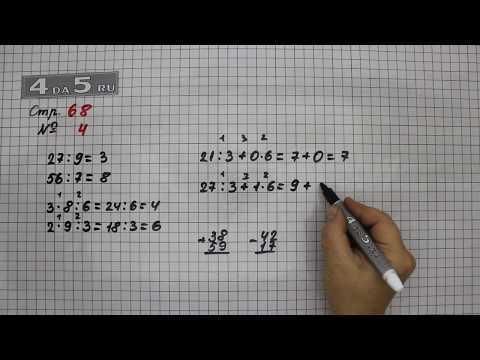 4 DA 5 RU
Стр. 68
№ 4
27 : 9 = 3
56 : 7 = 8
1 2
3 · 8 : 6 = 24 : 6 = 4
1 2
2 · 9 : 3 = 18 : 3 = 6
1 3 2
21 : 3 + 0 · 6 = 7 + 0 = 7
1 3 2
27 : 3 + 1 · 6 = 9 +
+ 38
59
- 42
17
4 DA 5 RU